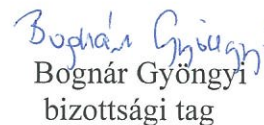 Bognár Gyöngyi
Bognár Gyöngyi
bizottsági tag